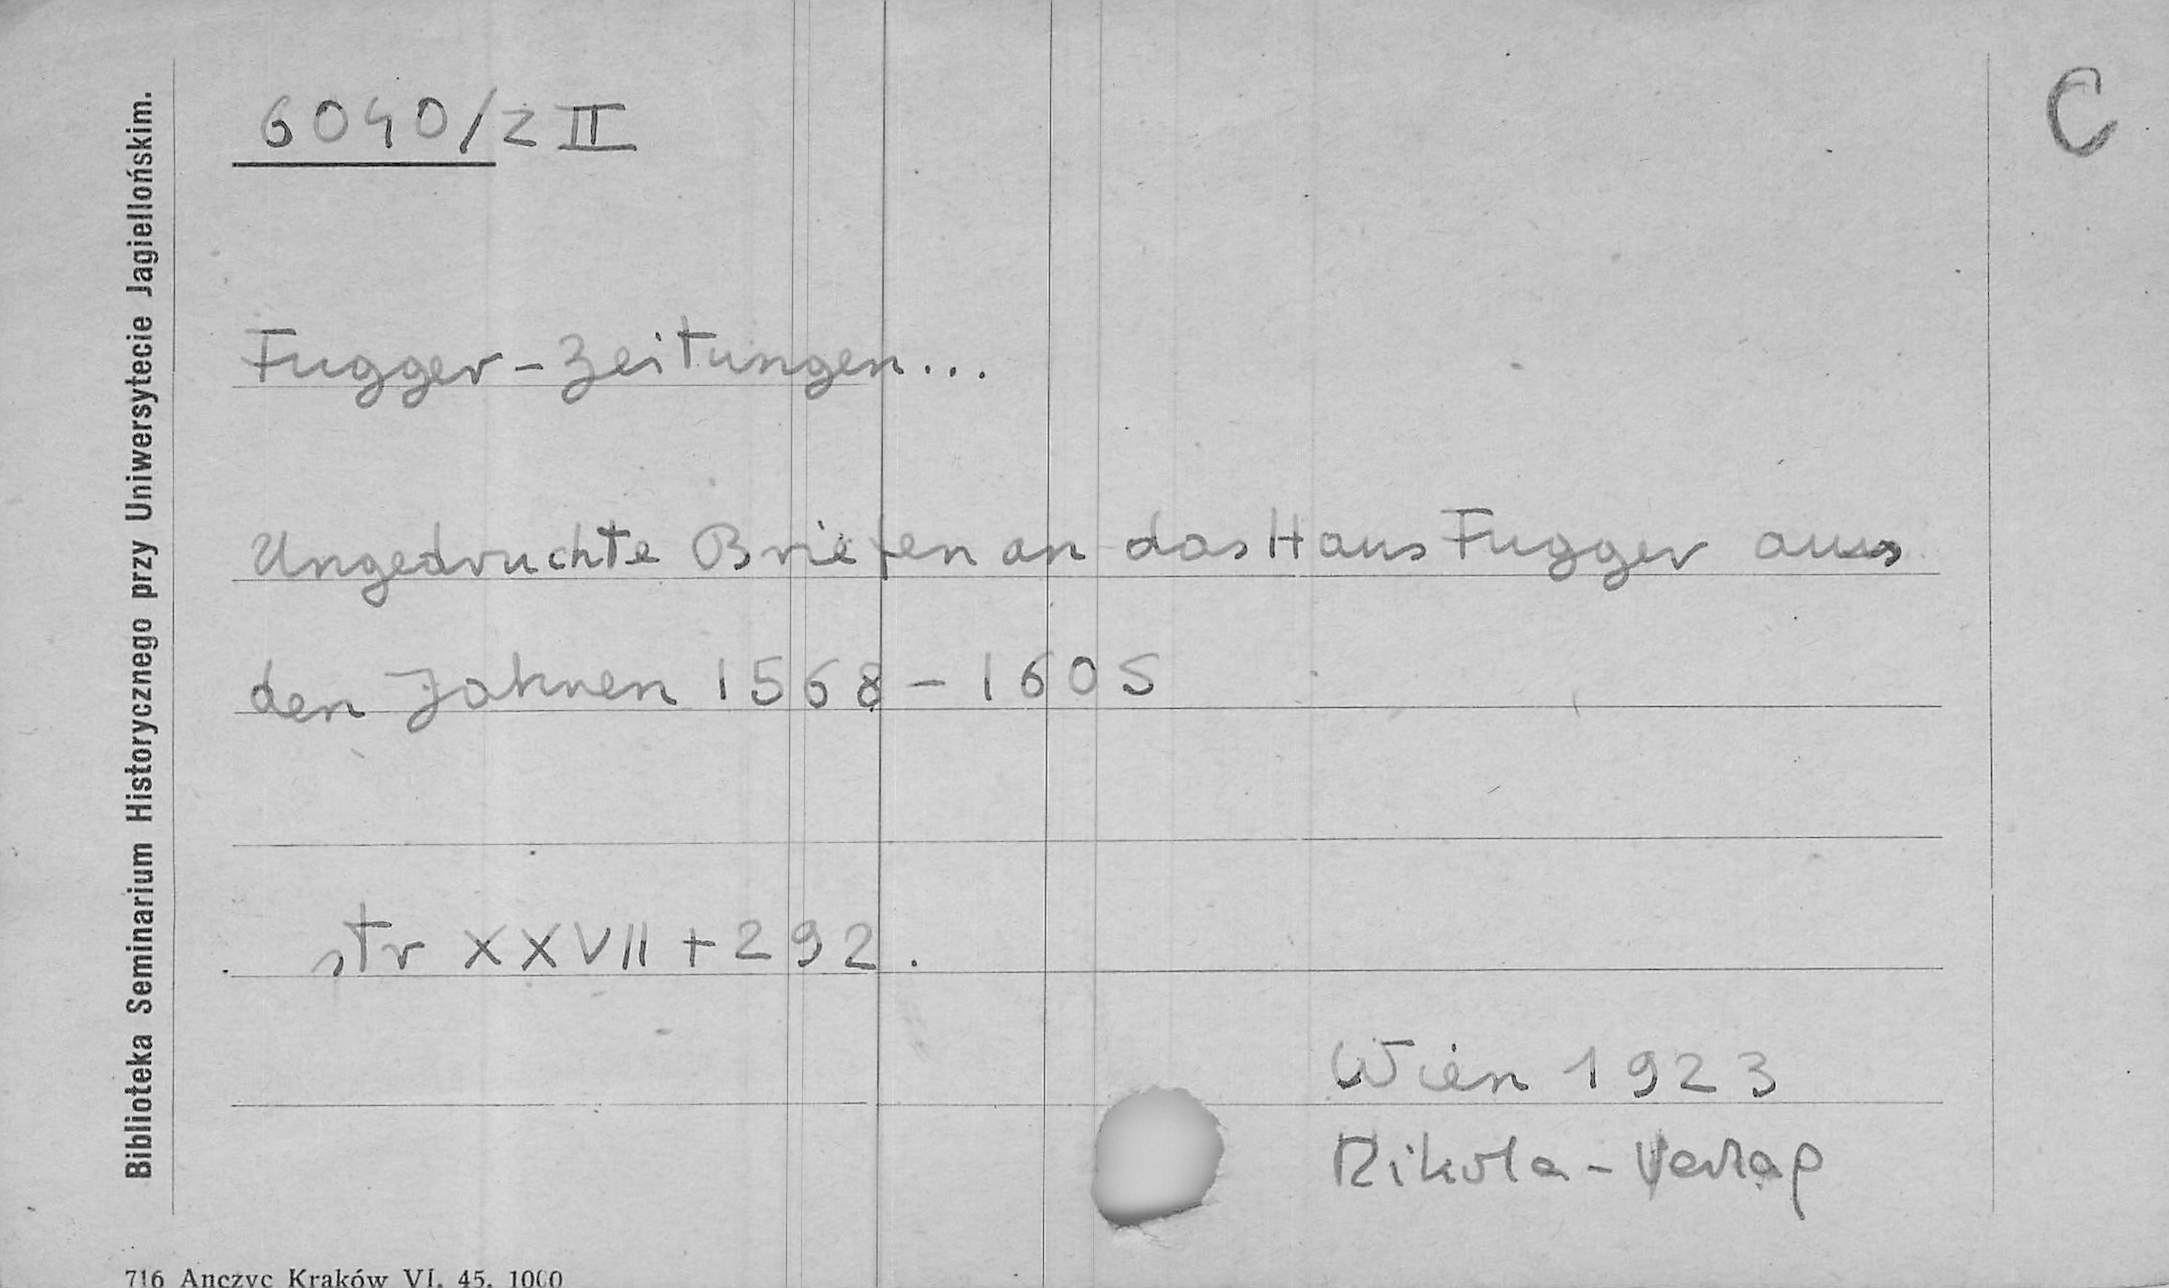 6040/Z II
C
Fugger-Zeitungen...
Ungedruchte Briefen an das Haus Fugger aus
den Jahren 1568-1605
str XXVII + 292.
Wien 1923
Rikola-Verlag
Biblioteka Seminarium Historycznego przy Uniwersytecie Jagiellońskim.
716 Anczyc Kraków VI. 45. 1000